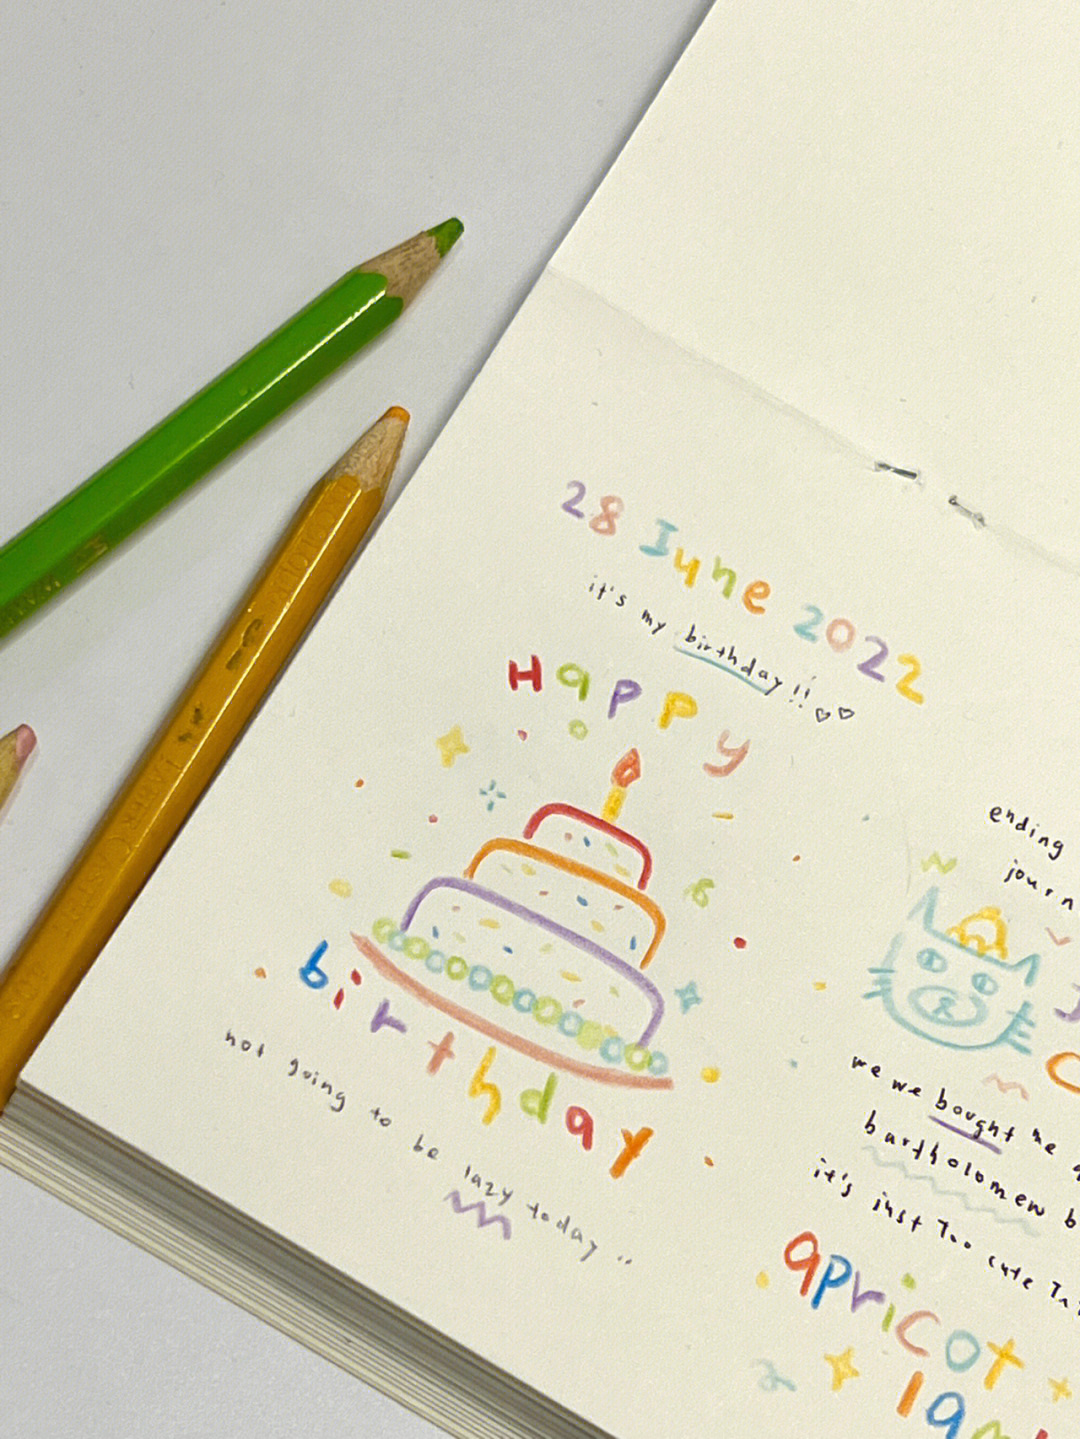 28 June 2022
it's my birthday!!
Happy
birthday
not going to be lazy today
ending
journ
we we bought me a
bartholomew b
it's just too cute
apricot